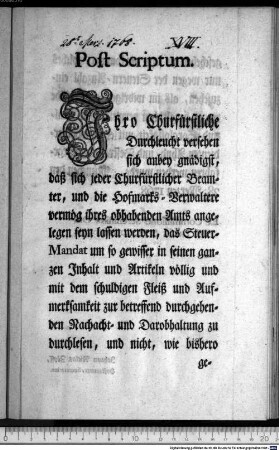 28ᵗ Nov. 1768. XVIII.
Post Scriptum.
Ihro Churfürstliche
Durchleucht versehen
sich anbey gnädigst,
daß sich jeder Churfürstlicher Beam-
ter, und die Hofmarks-Verwaltere
vermög ihres obhabenden Amts ange-
legen seyn lassen werden, das Steuer-
Mandat um so gewisser in seinen gan-
zen Inhalt und Artikeln völlig und
mit dem schuldigen Fleiß und Auf-
merksamkeit zur betreffend durchgehen-
den Nachacht- und Darobhaltung zu
durchlesen, und nicht, wie bishero
ge-
0 1 2 3 4 5 6 7 8 9 10 11 12 13 14 15 16 17 18 19 20